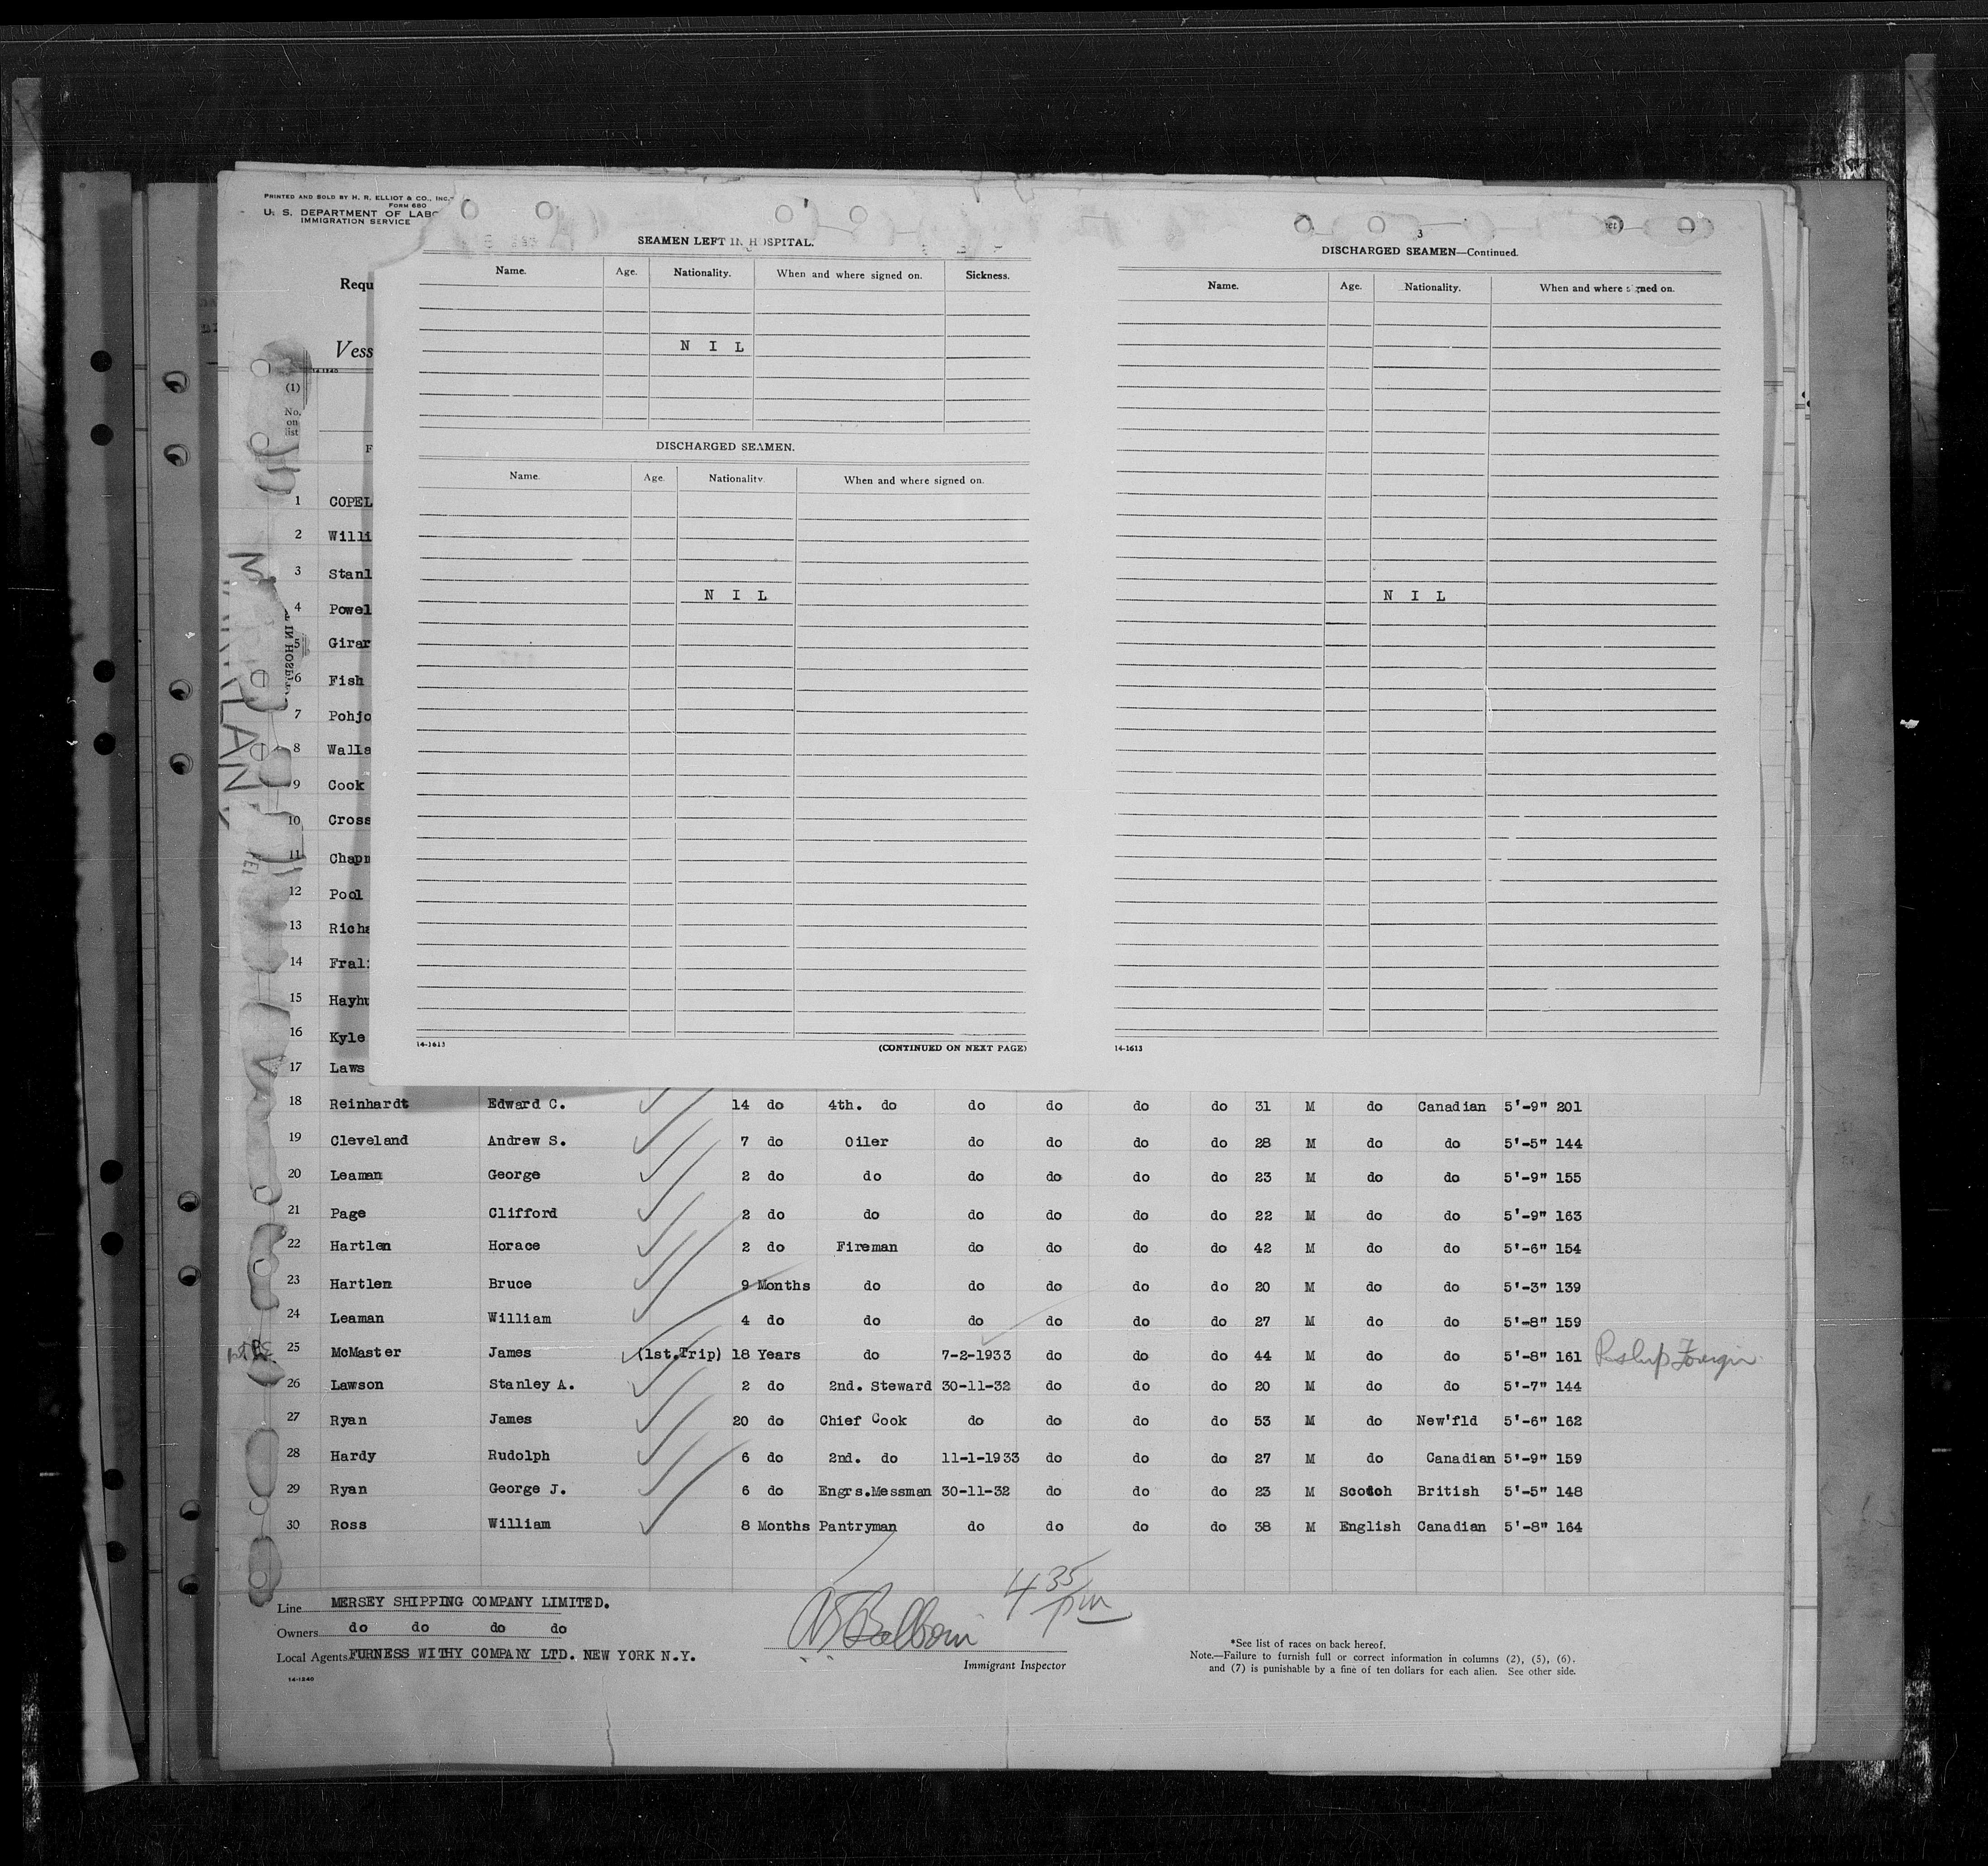 PRINTED AND SOLD BY H. R. ELLIOT & CO., INC.
FORM 680
U. S. DEPARTMENT OF LABO
IMMIGRATION SERVICE
Requ
Vess
14-1240
(1)
No.
on
list
F
SEAMEN LEFT IN HOSPITAL.
Name. Age. Nationality. When and where signed on. Sickness.
N I L
DISCHARGED SEAMEN.
Name. Age. Nationality. When and where signed on.
N I L
14-1613 (CONTINUED ON NEXT PAGE)
3
DISCHARGED SEAMEN—Continued.
Name. Age. Nationality. When and where signed on.
N I L
14-1613
1 COPEL
2 Willi
3 Stanl
4 Powel
5 Girar
6 Fish
7 Pohjo
8 Walla
9 Cook
10 Cross
11 Chapm
12 Pool
13 Richa
14 Frali
15 Hayhu
16 Kyle
17 Laws
18 Reinhardt Edward C. 14 do 4th. do do do do do 31 M do Canadian 5'-9" 201
19 Cleveland Andrew S. 7 do Oiler do do do do 28 M do do 5'-5" 144
20 Leaman George 2 do do do do do do 23 M do do 5'-9" 155
21 Page Clifford 2 do do do do do do 22 M do do 5'-9" 163
22 Hartlen Horace 2 do Fireman do do do do 42 M do do 5'-6" 154
23 Hartlen Bruce 9 Months do do do do do 20 M do do 5'-3" 139
24 Leaman William 4 do do do do do do 27 M do do 5'-8" 159
25 McMaster James (1st.Trip) 18 Years do 7-2-1933 do do do 44 M do do 5'-8" 161
26 Lawson Stanley A. 2 do 2nd. Steward 30-11-32 do do do 20 M do do 5'-7" 144
27 Ryan James 20 do Chief Cook do do do do 53 M do New'fld 5'-6" 162
28 Hardy Rudolph 6 do 2nd. do 11-1-1933 do do do 27 M do Canadian 5'-9" 159
29 Ryan George J. 6 do Engrs.Messman 30-11-32 do do do 23 M Scotch British 5'-5" 148
30 Ross William 8 Months Pantryman do do do do 38 M English Canadian 5'-8" 164
Line MERSEY SHIPPING COMPANY LIMITED.
Owners do do do do
Local Agents FURNESS WITHY COMPANY LTD. NEW YORK N.Y.
14-1240
4 35 pm
Immigrant Inspector
*See list of races on back hereof.
Note.—Failure to furnish full or correct information in columns (2), (5), (6),
and (7) is punishable by a fine of ten dollars for each alien. See other side.